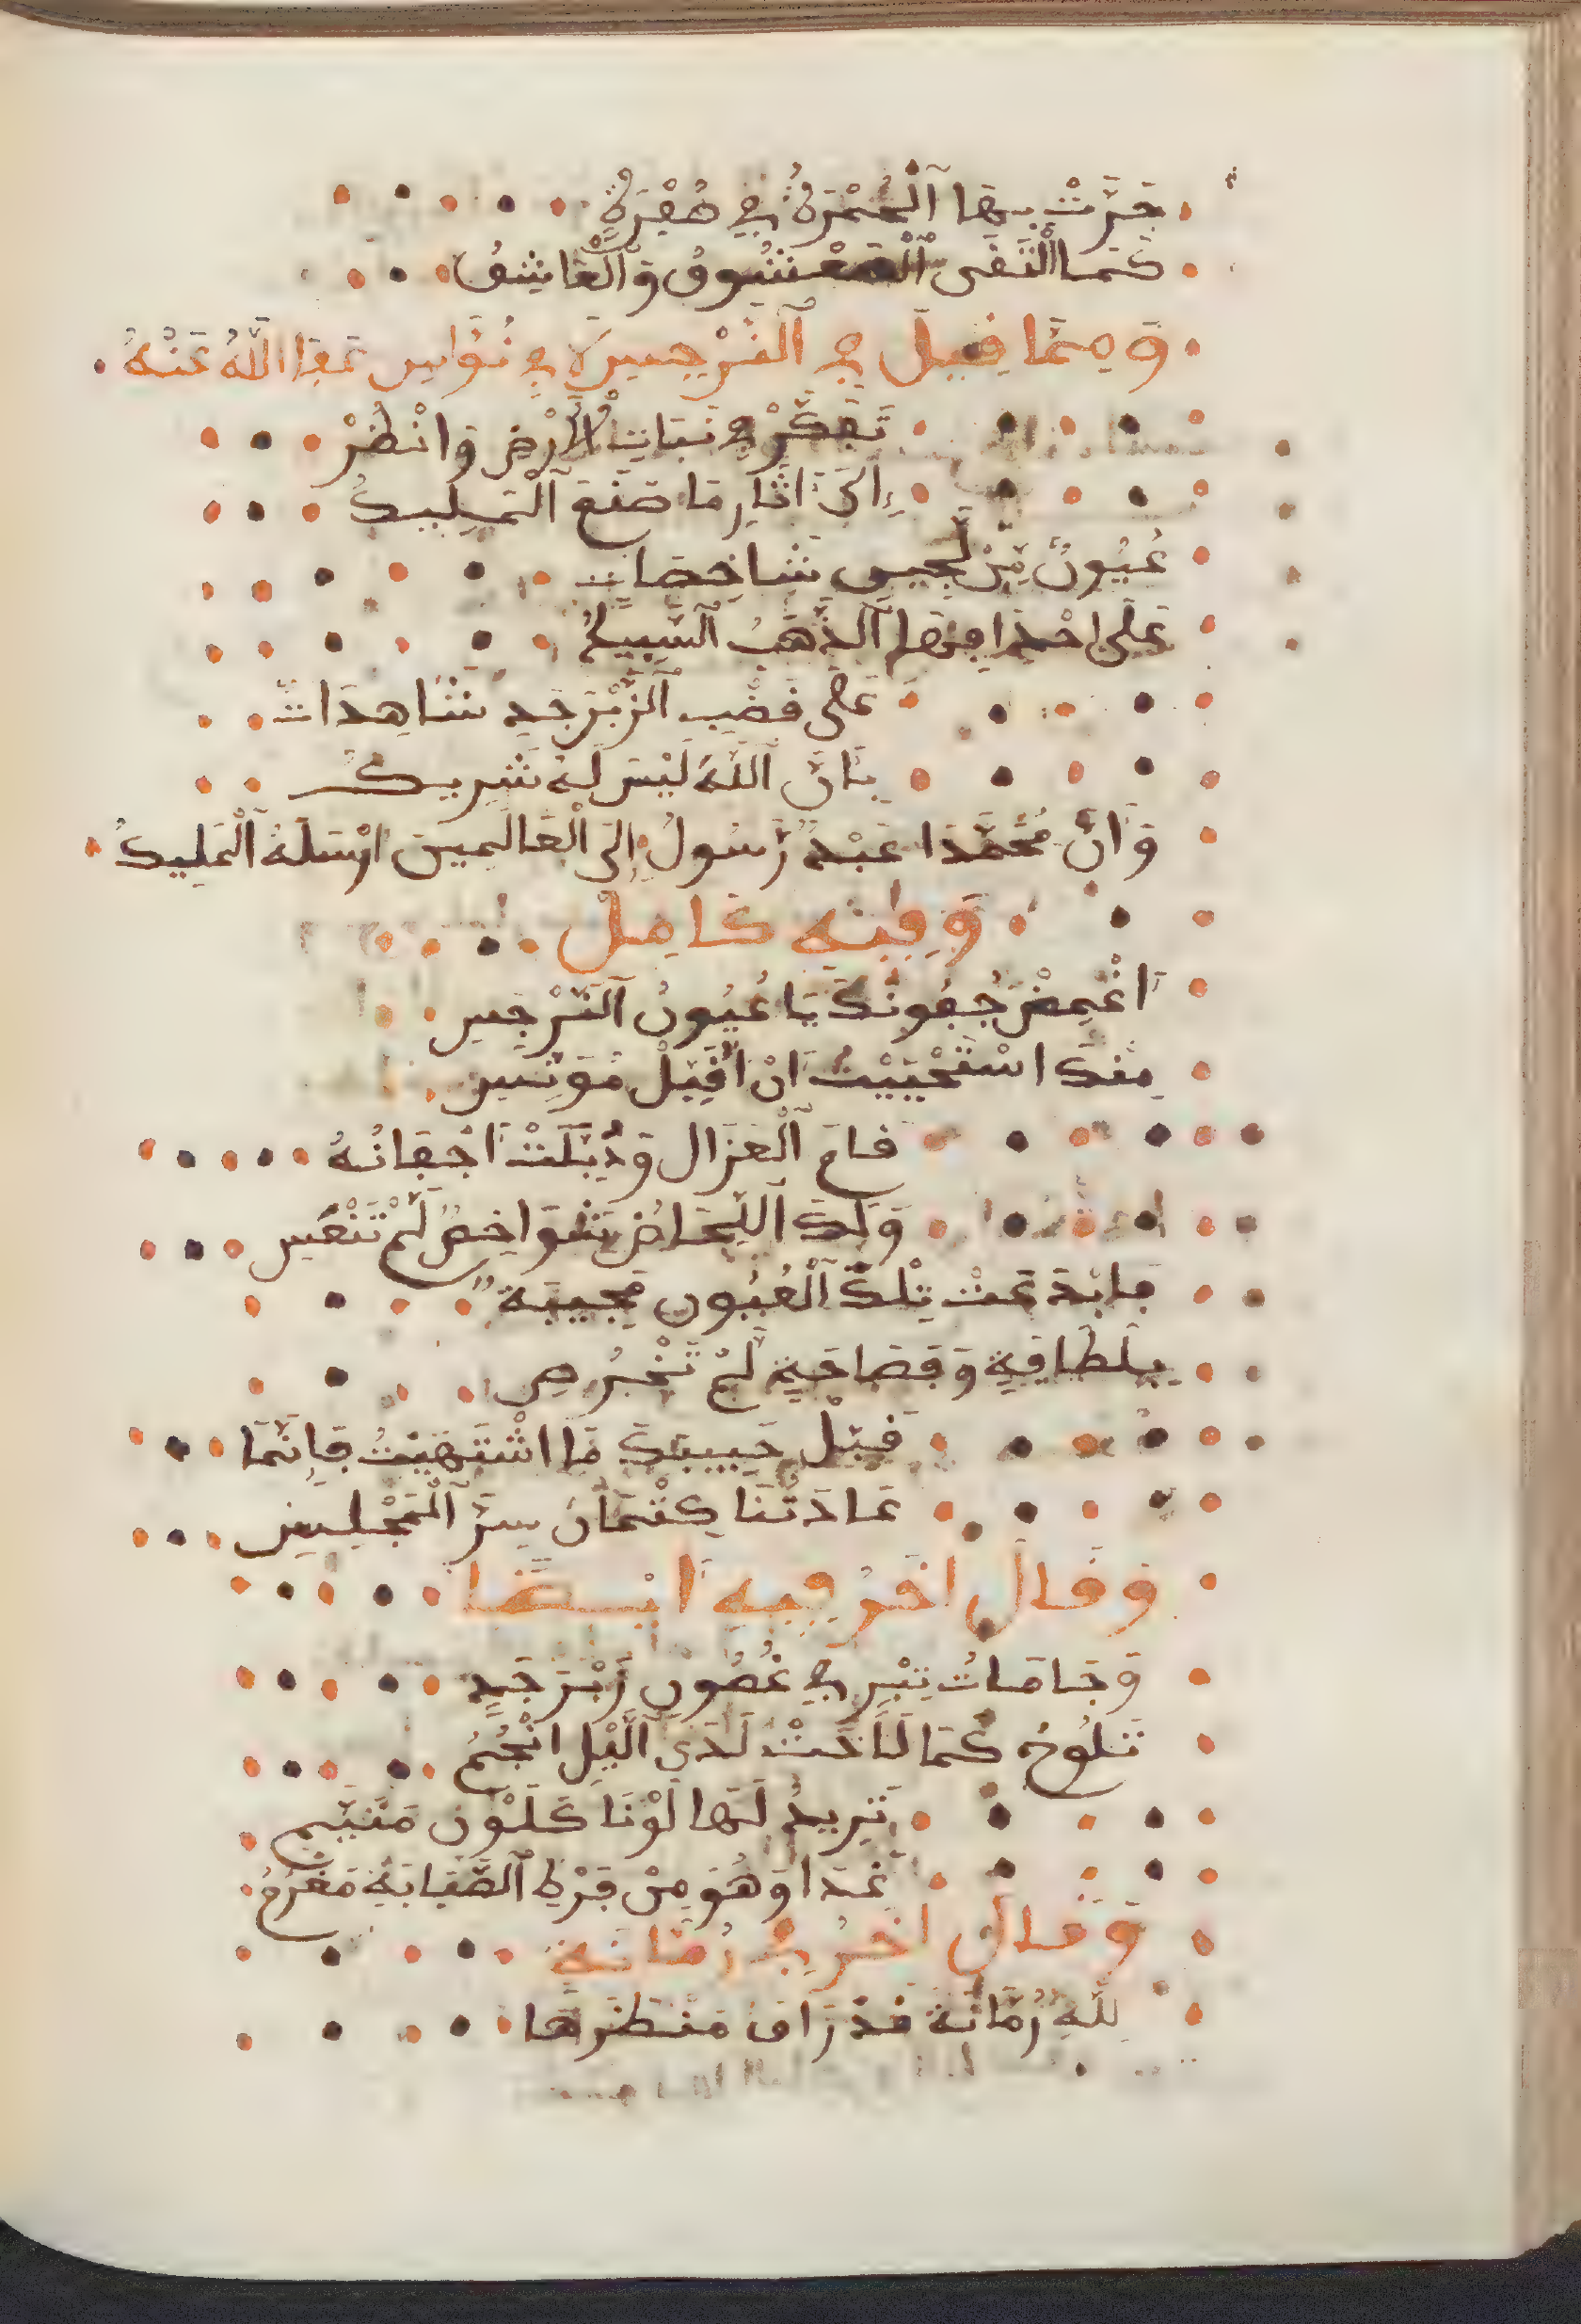 جَرَتْ بِهَا الْحُمْرَةُ فِي صُفْرَةٍ
كَمَا الْتَقَى الْمَعْشُوقُ وَالْعَاشِقُ
وَمِمَّا قِيلَ فِي النَّرْجِسِ لأبي نُوَاسٍ عَفَا اللَّهُ عَنْهُ
تَفَكَّرْ فِي نَبَاتِ الْأَرْضِ وَانْظُرْ
إِلَى آثَارِ مَا صَنَعَ الْمَلِيكُ
عُيُونٌ مِّنْ لُّجَيْنٍ شَاخِصَاتٍ
عَلَى احْدَاقِهَا الذَّهَبُ السَّبِيكُ
عَلَى قُضُبِ الزَّبَرْجَدِ شَاهِدَاتٌ
بِأَنَّ اللَّهَ لَيْسَ لَهُ شَرِيكُ
وَأَنَّ مُحَمَّدًا عَبْدٌ رَسُولٌ إِلَى الْعَالَمِينَ ارْسَلَهُ الْمَلِيكُ
وَفِيهِ كَامِلْ
أَغْمِضْ جُفُونَكَ يَا عُيُونُ النَّرْجِسِ
مِنْكَ اسْتَحْيَيْتُ أَنْ أُقَبِّلْ مُؤنِسِ
قَامَ الْغَزَال وَذُبِّلَتْ أَجْفَانُهُ
وَلَكَ اللِّحَاضُ شَوَاخِصٌ لَمْ تَنْعَسِ
فَابْدَعَتْ تِلْكَ الْعُيُونِ مُجِيبَةً
بِلَطَافَةٍ وَفَصَاحَةٍ لَمْ تَخْرُصِ
قَبِّلْ حَبِيبَكَ مَا اشْتَهَيْتُ فَإِنَّمَا
عَادَتُنَا كِتْمَانُ سِرِّ الْمَجْلِسِ
وَقَالَ اخَرُ فِيهِ أَيْضًا
وَجَامَاتُ تِبْرٍ فِي غُصُونِ زَبَرْجَدٍ
تَلُوحُ كَمَا لَاحَتْ لَدَى اللَّيْلِ انْجُمُ
تُرِيدُ لَهَا لَوْنًا كَلَوْنِ مُتَيَّمٍ
غَدَا وَهُوَ مِنْ فَرْطِ الصَّبَابَةِ مُغْرَمُ
وَقَالَ اخَرُ فِي رُمَّانَةٍ
لِلَّهِ رُمَّانَةٌ قَدْ رَاقَ مَنْظَرُهَا